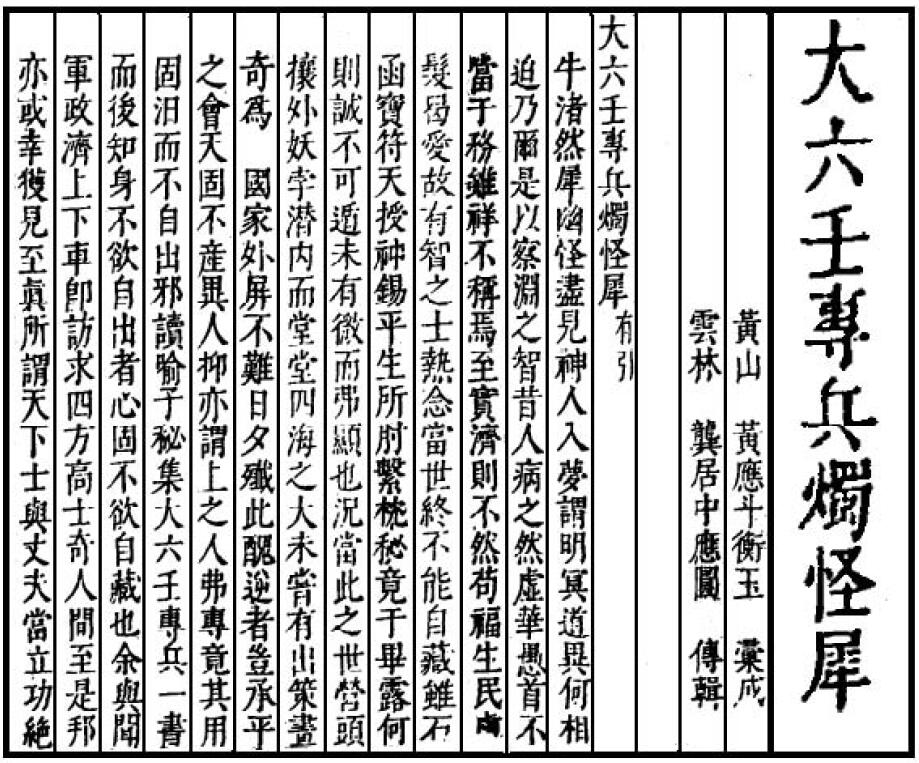 大六壬專兵燭怪犀
黃山　黃應斗衡玉　彙成
雲林　龔居中應圓　傳輯
大六壬專兵燭怪犀有引
牛渚然犀幽怪盡見神人入夢謂明冥道異何相
迫乃爾是以察淵之智昔人病之然虛華愚首不
當于務雖祥不稱焉至實濟則不然苟福生民
髮曷愛故有智之士熱念當世終不能自藏雖石
函寶符天授神錫平生所肘繫枕秘竟于畢露何
則誠不可遁未有微而弗顯也況當此之世營頭
攘外妖孛潛内而堂堂四海之大未嘗有出策畫
奇爲　國家外屏不難日夕殲此醜逆者豈承平
之會天固不産異人抑亦謂上之人弗專竟其用
固汨而不自出邪讀喻子秘集大六壬專兵一書
而後知身不欲自出者心固不欲自藏也余與聞
軍政濟上下車卽訪求四方高士奇人間至是邦
亦或幸獲見至眞所謂天下士與丈夫當立功絶